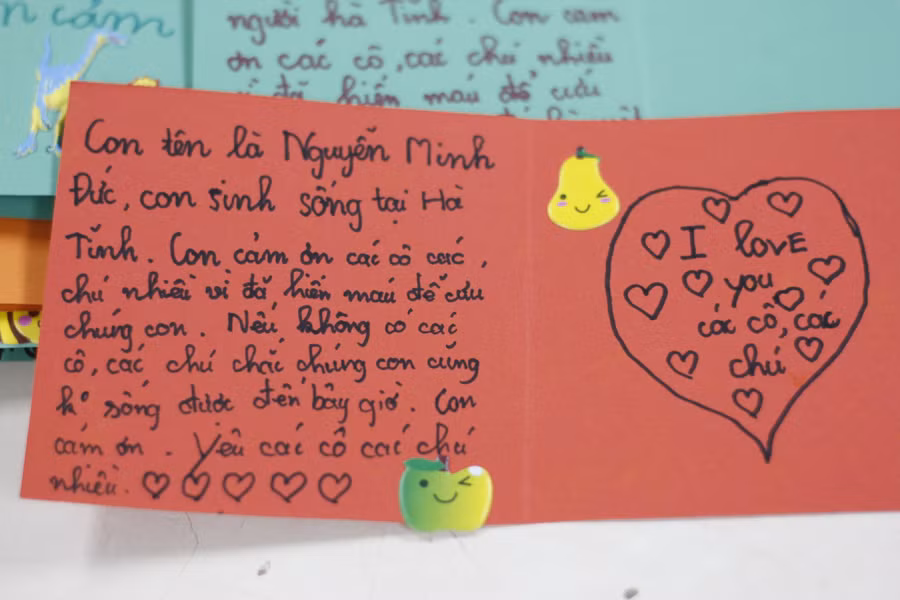 n cảm
người hà Tĩnh. Con cảm
ơn các cô, các chú nhiều
vì đã hiến máu để cứu
Con tên là Nguyễn Minh
Đức, con sinh sống tại Hà
Tĩnh. Con cảm ơn các cô các,
chú nhiều vì đã hiến máu để cứu
chúng con. Nếu không có các
cô, các chú chắc chúng con cũng
ko sống được đến bây giờ. Con
cảm ơn. Yêu các cô các chú
nhiều.
I lovE
you
các cô, các
chú